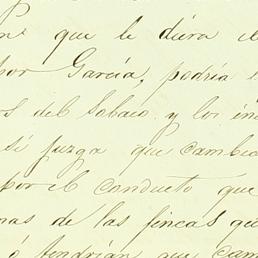 que le diera el
por García, podría
del tabaco y los in
si juzga que cambie
por el conducto que
nas de las fincas que
ó tendrían que cam